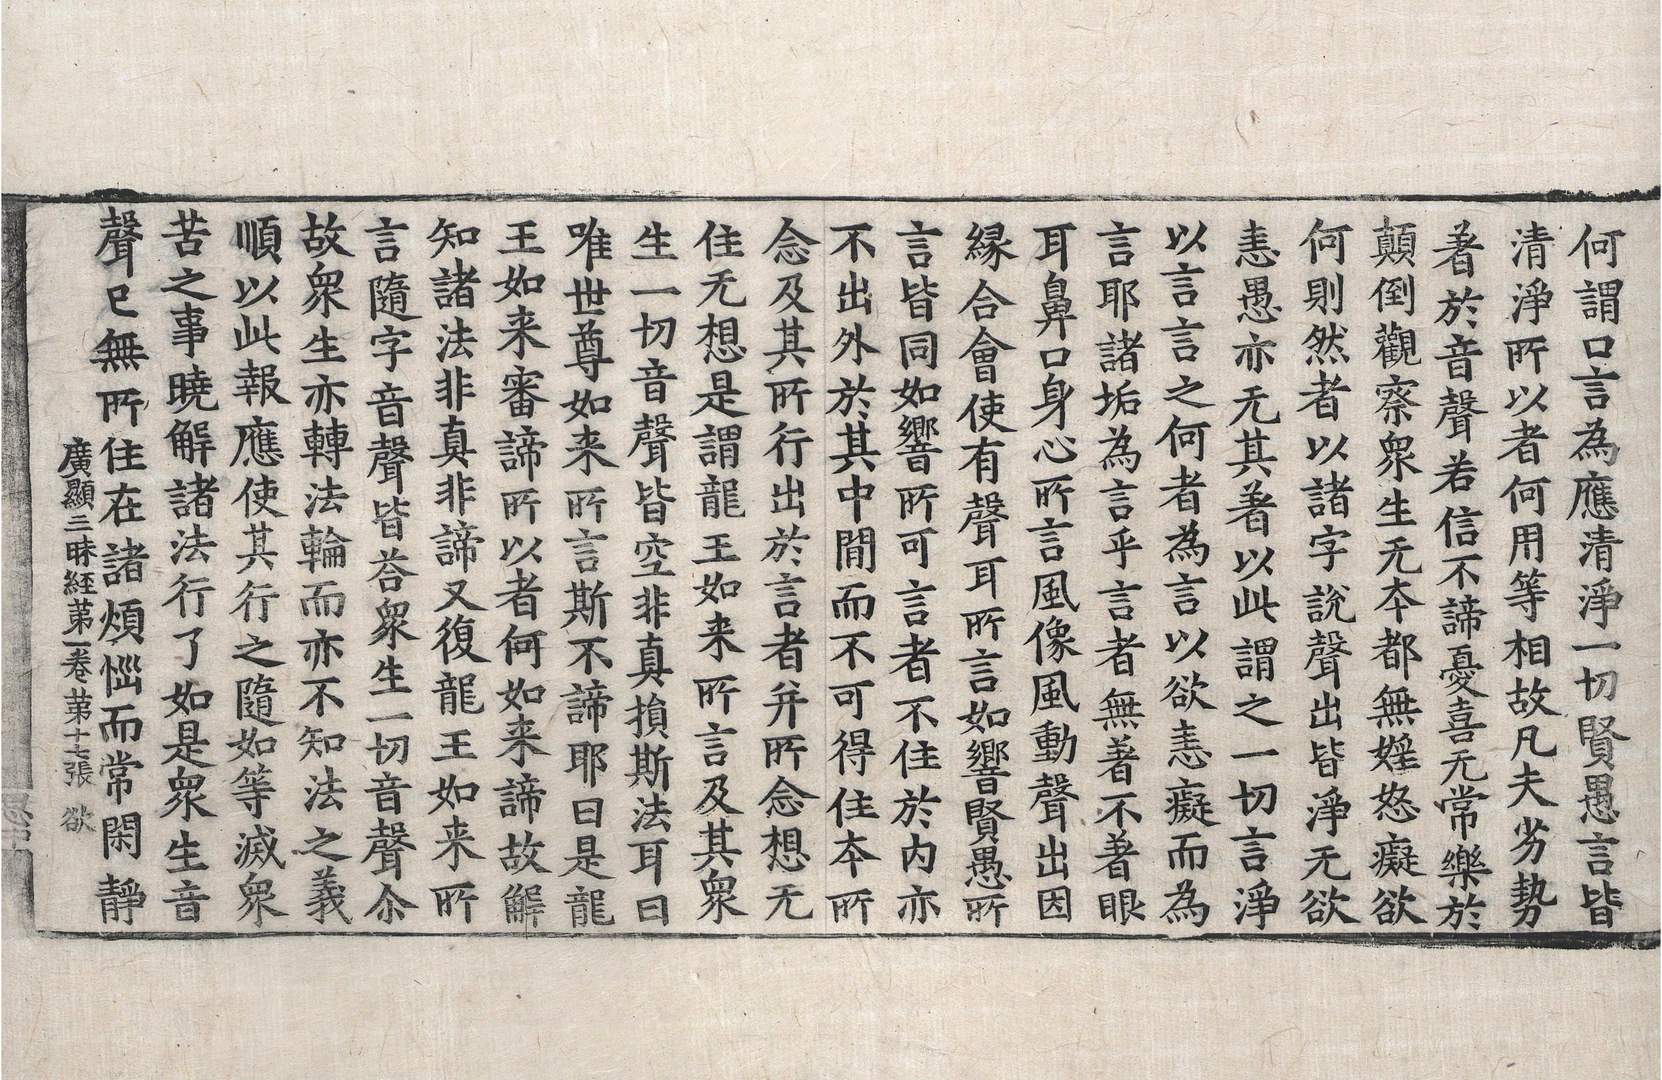 何謂口言為應清淨一切賢愚言皆
清淨所以者何用等相故凡夫劣勢
著於音聲若信不諦憂喜无常樂於
顛倒觀察眾生无本都無婬怒癡欲
何則然者以諸字說聲出皆淨无欲
恚愚亦无其著以此謂之一切言淨
以言言之何者為言以欲恚癡而為
言耶諸垢為言乎言者無著不著眼
耳鼻口身心所言風像風動聲出因
緣合會使有聲耳所言如響賢愚所
言皆同如響所可言者不住於內亦
不出外於其中間而不可得住本所
念及其所行出於言者并所念想无
住无想是謂龍王如来所言及其眾
生一切音聲皆空非真損斯法耳曰
唯世尊如来所言斯不諦耶曰是龍
王如来審諦所以者何如来諦故解
知諸法非真非諦又復龍王如来所
言隨字音聲皆荅眾生一切音聲尒
故眾生亦轉法輪而亦不知法之義
順以此報應使其行之隨如等滅眾
苦之事曉解諸法行了如是眾生音
聲已無所住在諸煩惱而常閑靜
廣顯三昧經第一卷 第十七張 欲